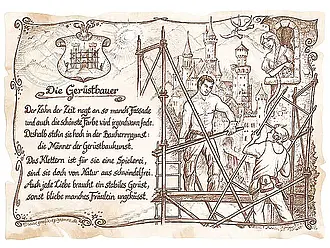 Die Gerüstbauer
Der Zahn der Zeit nagt an so manch Fassade
und auch die schönste Farbe wird irgendwann fade.
Deshalb stehn sie hoch in der Bauherrngunst:
die Männer der Gerüstbaukunst.
Das Klettern ist für sie eine Spielerei,
sind sie doch von Natur aus schwindelfrei.
Auch jede Liebe braucht ein stabiles Gerüst,
sonst bliebe manches Fräulein ungküsst.